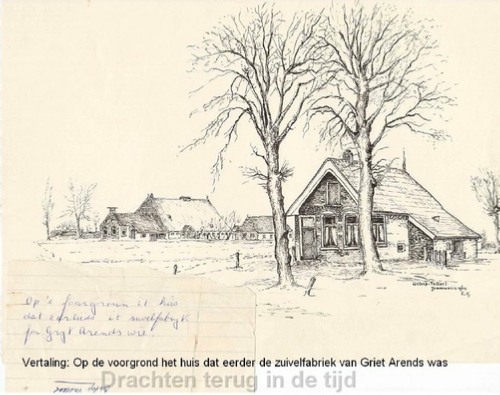 Op 'e foargroun it hûs
dat earluds it suvelfabryk
fan Gryt Arends wie.
Vertaling: Op de voorgrond het huis dat eerder de zuivelfabriek van Griet Arends was
Drachten terug in de tijd